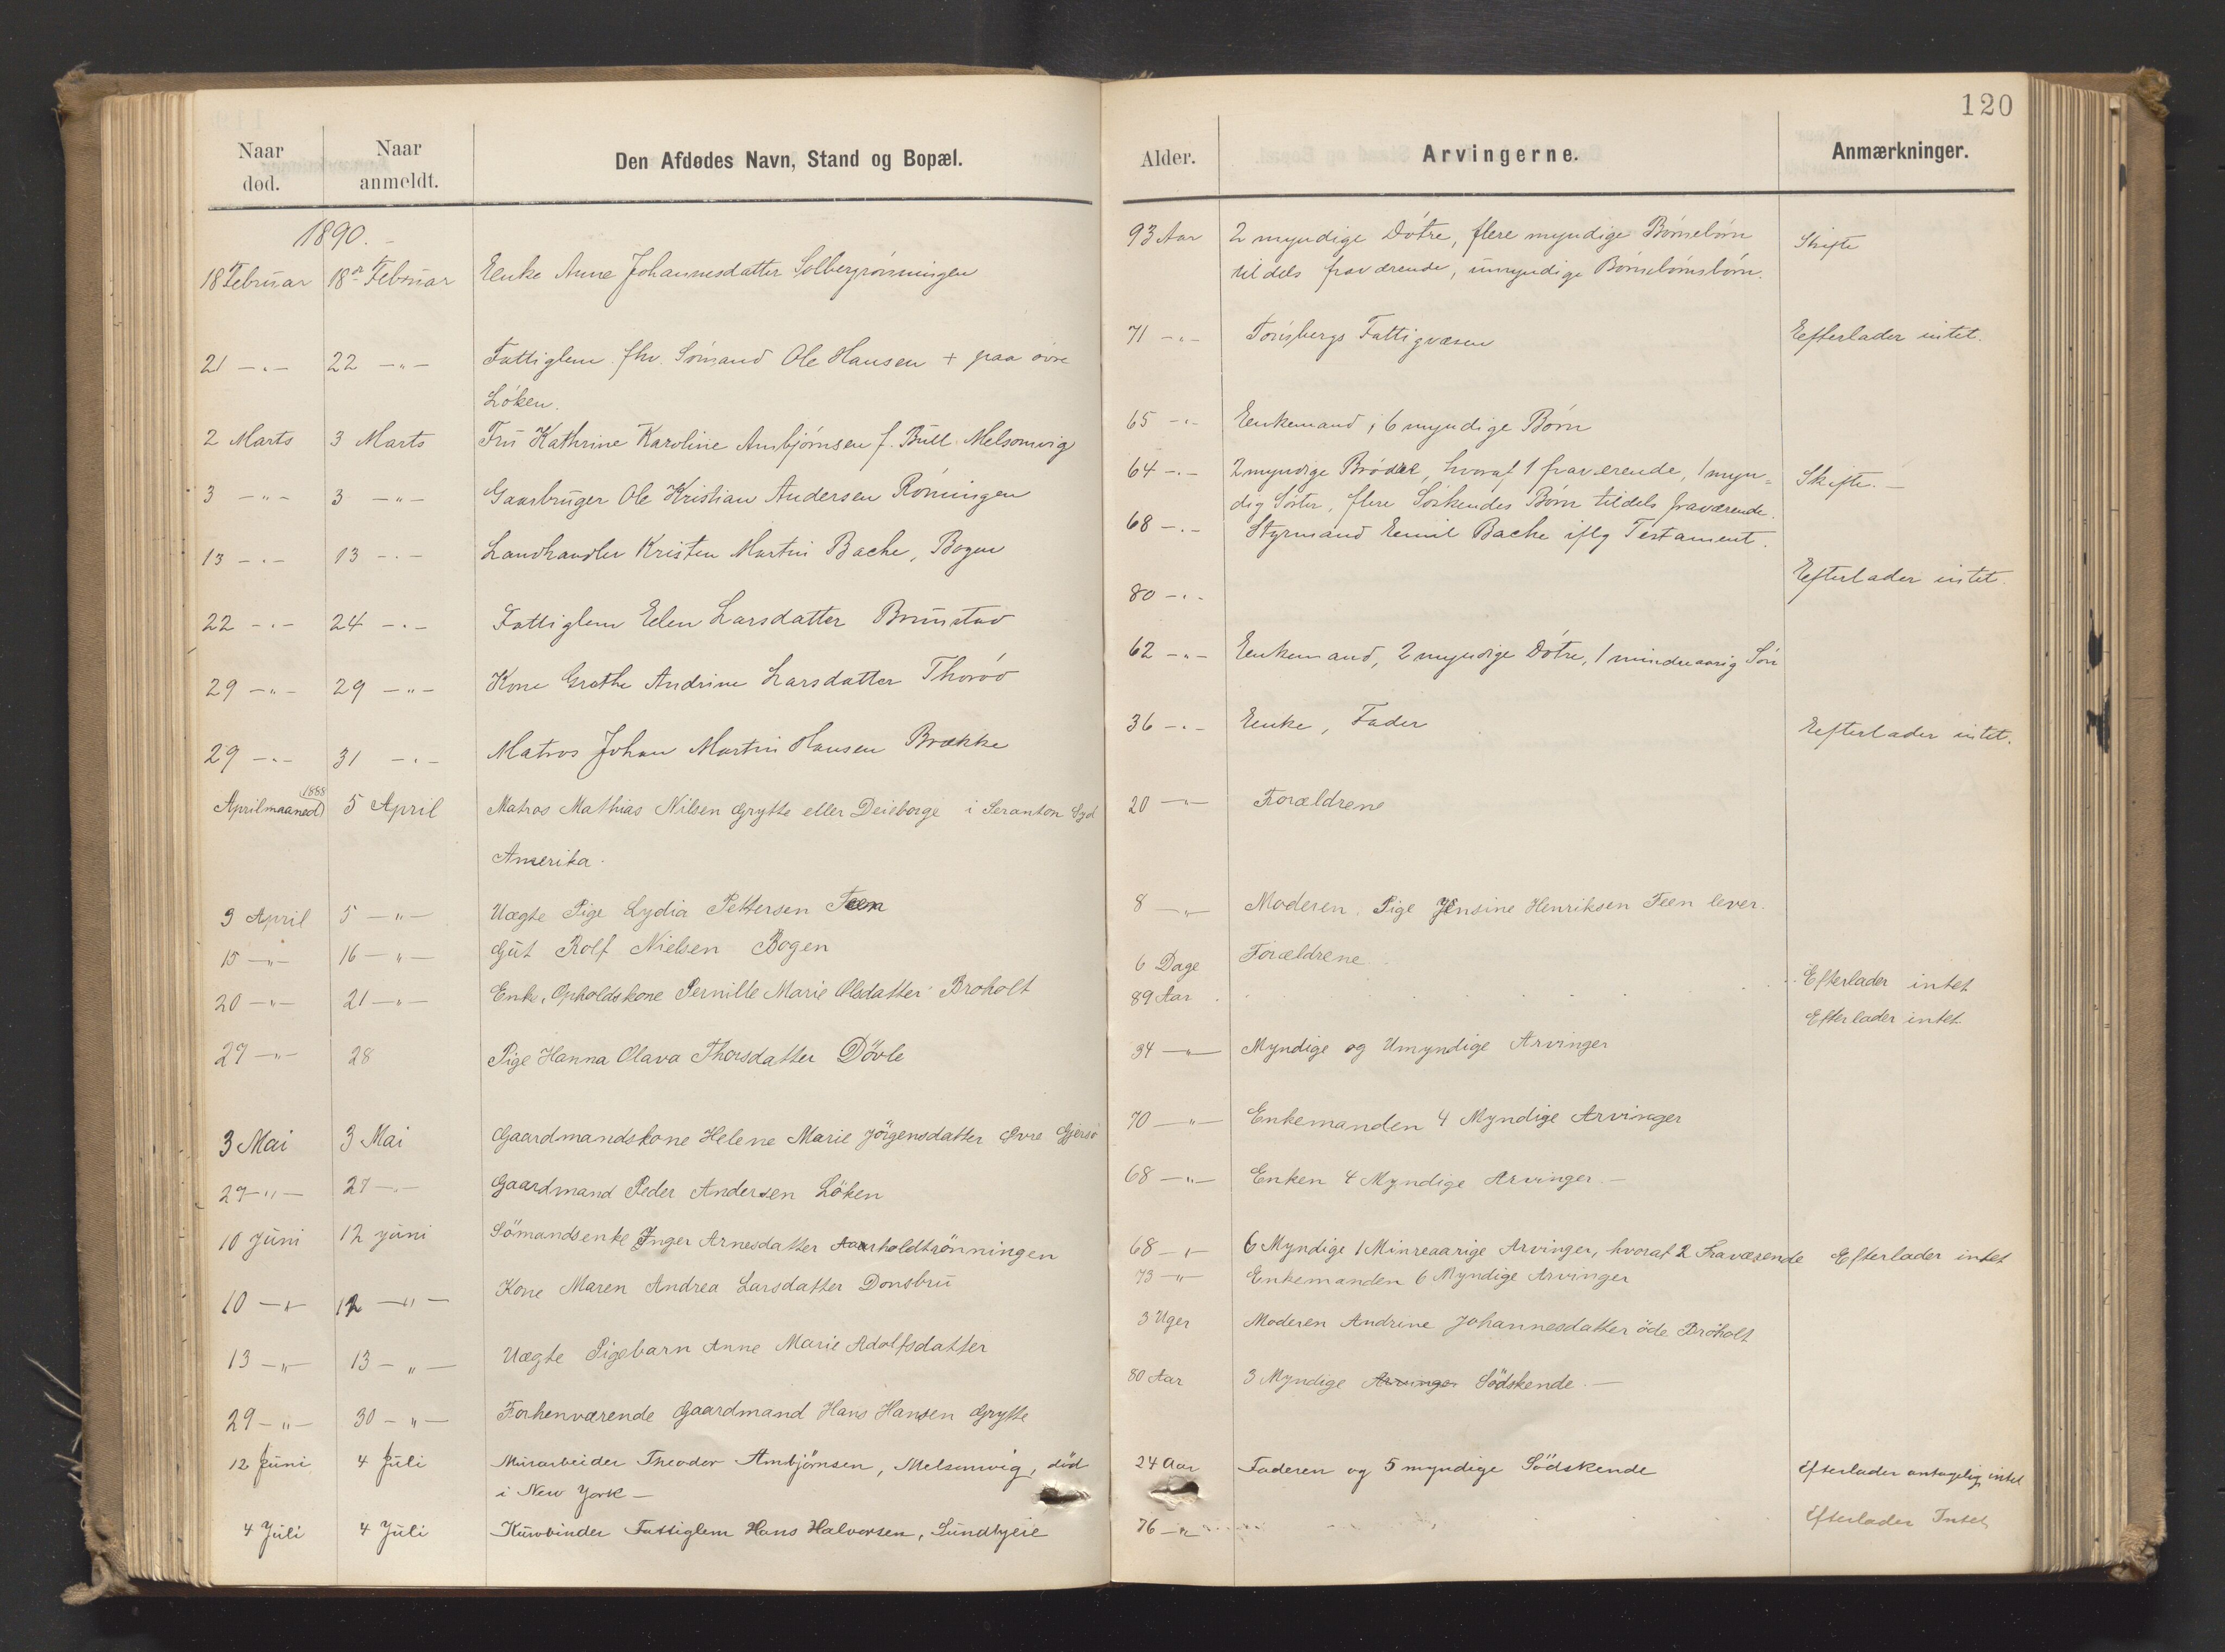 120
Naar død.
Naar anmeldt.
Den Afdødes Navn, Stand og Bopæl.
Alder.
Arvingerne.
Anmærkninger.
1890.
18 Februar 18de Februar Enke Anne Johannesdatter Solbergrønningen 93 Aar 2 myndige Døtre, flere myndige Børnebørn Skifte
tildels fraværende, umyndige Børnebørnsbørn.
21 -"- 22 -"- Fattiglem fhv. Sømand Ole Hansen + paa øvre 71 -"- Tønsbergs Fattigvæsen Efterlader intet.
Løken.
2 Marts 3 Marts Fru Kathrine Karoline Ambjørnsen f. Bull Melsomvig 65 -"- Enkemand, 6 myndige Børn
3 -"- 3 -"- Gaarbruger Ole Kristian Andersen Røningen 64 -"- 2 myndige Brødre, hvoraf 1 fraværende, 1 myn= Skifte.-
dig Søster, flere Søskendes Børn tildels fraværende.
13 -"- 13 -"- Landhandler Kristen Martin Bache, Bogen 68 -"- Styrmand Emil Bache iflg Testament.
22 -"- 24 -"- Fattiglem Elen Larsdatter Brunstad 80 -"- Efterlader intet.
29 -"- 29 -"- Kone Grethe Andrine Larsdatter Thorød 62 -"- Enkemand, 2 myndige Døtre, 1 mindreaarig Søn
29 -"- 31 -"- Matros Johan Martin Hansen Brække 36 -"- Enke, Fader Efterlader intet.
Aprilmaaned 1888 5 April Matros Mathias Nilsen Grytte eller Deieborge i Seranton Syd 20 -"- Forældrene
Amerika.
3 April 5 -"- Uægte Pige Lydia Pettersen Teen 8 -"- Moderen. Pige Jensine Henriksen Feen lever.
15 -"- 16 -"- Gut Rolf Nielsen Bogen 6 Dage Forældrene
20 -"- 21 -"- Enke, Opholdskone Pernille Marie Olsdatter Broholt 89 Aar Efterlader intet
Efterlader intet
27 -"- 28 Pige Hanna Olava Thorsdatter Døvle 34 -"- Myndige og Umyndige Arvinger
3 Mai 3 Mai Gaardmandskone Helene Marie Jörgensdatter Øvre Gjersø 70 -"- Enkemanden 4 Myndige Arvinger
27 -"- 27 -"- Gaardmand Peder Andersen Löken 68 -"- Enken 4 Myndige Arvinger.-
10 Juni 12 Juni Sömandsenke Inger Arnesdatter Aarholdtrönningen 68 -"- 6 Myndige 1 Minreaarige Arvinger, hvoraf 2 Fraværende Efterlader intet
10 -"- 12 -"- Kone Maren Andrea Larsdatter Donsbru 73 -"- Enkemanden 6 Myndige Arvinger
13 -"- 13 -"- Uægte Pigebarn Anne Marie Adolfsdatter 3 Uger Moderen Andrine Johannesdatter öde Bröholt
29 -"- 30 -"- Forhenværende Gaardmand Hans Hansen Grytte 80 Aar 3 Myndige Arvinger Södskende.-
12 Juni 4 Juli Murarbeider Theodor Ambjörnsen, Melsomvig, död 24 Aar Faderen og 5 myndige Södskende Efterlader antagelig intet
i New York -
4 Juli 4 Juli Kurvbinder Fattiglem Hans Halvorsen, Sundbyeie 76 -"- Efterlader Intet